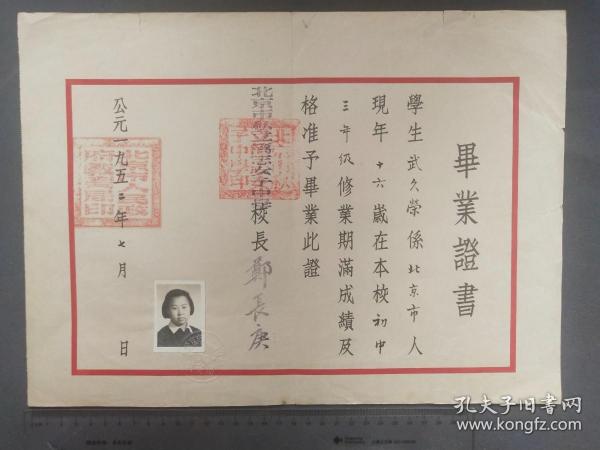 畢業證書
學生武久榮係北京市人
現年十六歲在本校初中
三年級修業期滿成績及
格准予畢業此證
校長鄭長庚
公元一九五二年七月 日
孔夫子旧书网
www.kongfz.com